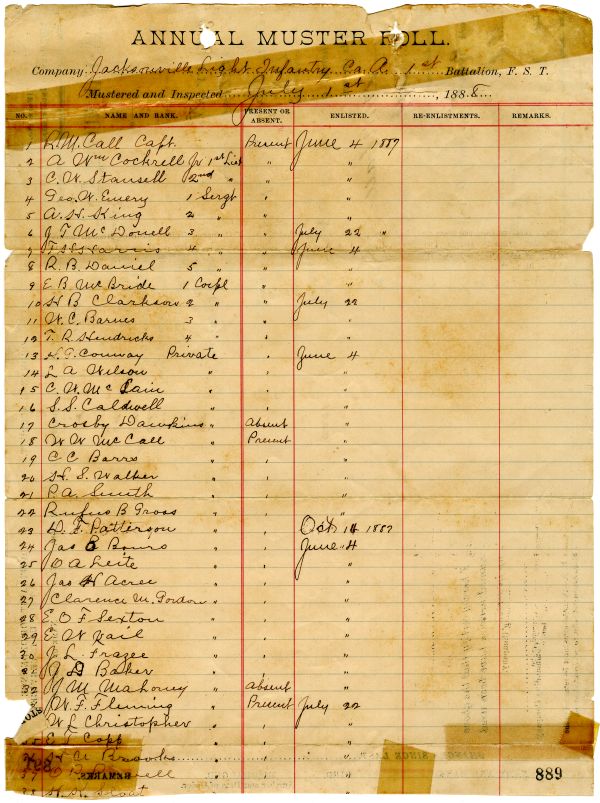 ANNUAL MUSTER ROLL.
Company Jacksonville Light Infantry Co. A. 1st Battalion, F. S. T.
Mustered and Inspected July 1st, 1888
NO. NAME AND RANK. PRESENT OR ABSENT. ENLISTED. RE-ENLISTMENTS. REMARKS.
1 R. M. Call Capt. Present June 4 1887
2 A Wm Cockrell Jr 1st Lieut " "
3 C. W. Stansell 2nd " " "
4 Geo. W. Emery 1 Sergt " "
5 A. H. King 2 " " "
6 J. T. McDonell 3 " " July 22 "
7 F S Harris 4 " " June 4
8 R. B. Daniel 5 " " "
9 E B McBride 1 Corpl " "
10 H B Clarkson 2 " " July 22
11 W. C. Barnes 3 " " "
12 T. R. Hendricks 4 " " "
13 H. T. Conway Private " June 4
14 L A Wilson " " "
15 C. W. McLain " " "
16 S. S. Caldwell " " "
17 Crosby Dawkins " Absent "
18 W W McCall " Present "
19 C C Barrs " " "
20 H. S. Walker " " "
21 P. A. Smith " " "
22 Rufus B Gross " " "
23 D. F. Patterson " " Oct 14 1887
24 Jas Bours " " June 4
25 O A Leite " " "
26 Jas H Acree " " "
27 Clarence M. Gordon " " "
28 E O F Sexton " " "
29 E W Vail " " "
30 J L Frazee " " "
J D Baker " " "
32 J M Mahoney " Absent "
W. F. Fleming " Present July 22
W L Christopher " " "
35 E T Capp " " "
Brooks
37
38 Stout
REMARKS
889